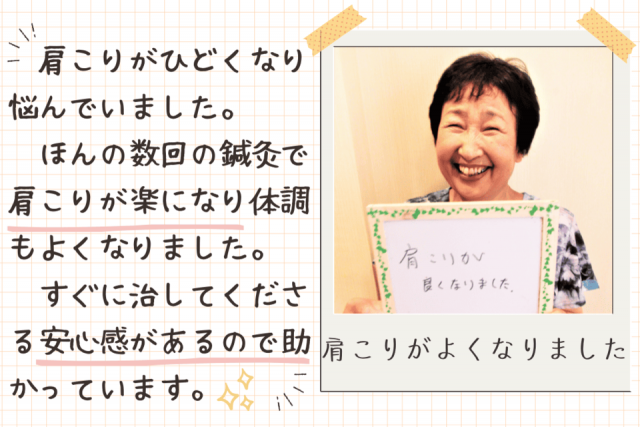 肩こりがひどくなり
悩んでいました。
ほんの数回の鍼灸で
肩こりが楽になり体調
もよくなりました。
すぐに治してくださ
る安心感があるので助
かっています。
肩こりが
良くなりました。
肩こりがよくなりました